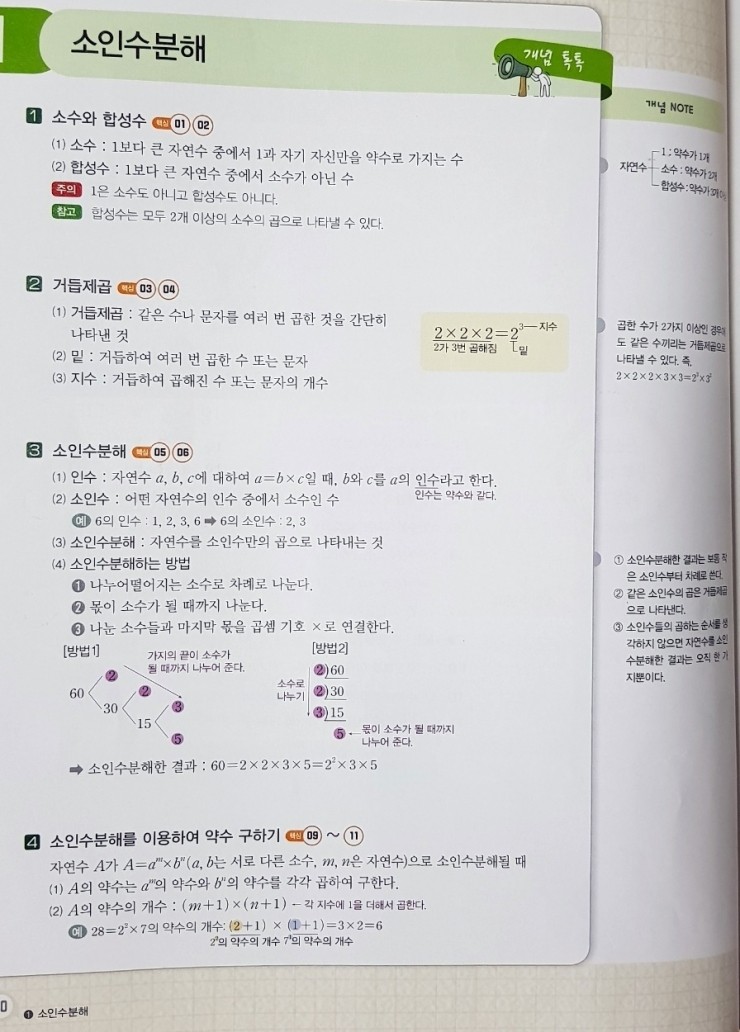 소인수분해
개념 톡톡
1 소수와 합성수 핵심 01 02
(1) 소수 : 1보다 큰 자연수 중에서 1과 자기 자신만을 약수로 가지는 수
(2) 합성수 : 1보다 큰 자연수 중에서 소수가 아닌 수
주의 1은 소수도 아니고 합성수도 아니다.
참고 합성수는 모두 2개 이상의 소수의 곱으로 나타낼 수 있다.
2 거듭제곱 핵심 03 04
(1) 거듭제곱 : 같은 수나 문자를 여러 번 곱한 것을 간단히
나타낸 것
(2) 밑 : 거듭하여 여러 번 곱한 수 또는 문자
(3) 지수 : 거듭하여 곱해진 수 또는 문자의 개수
2×2×2=2³ 지수
2가 3번 곱해짐 밑
3 소인수분해 핵심 05 06
(1) 인수 : 자연수 a, b, c에 대하여 a=b×c일 때, b와 c를 a의 인수라고 한다.
인수는 약수와 같다.
(2) 소인수 : 어떤 자연수의 인수 중에서 소수인 수
예 6의 인수 : 1, 2, 3, 6 ➡ 6의 소인수 : 2, 3
(3) 소인수분해 : 자연수를 소인수만의 곱으로 나타내는 것
(4) 소인수분해하는 방법
❶ 나누어떨어지는 소수로 차례로 나눈다.
❷ 몫이 소수가 될 때까지 나눈다.
❸ 나눈 소수들과 마지막 몫을 곱셈 기호 ×로 연결한다.
[방법1]
가지의 끝이 소수가
될 때까지 나누어 준다.
60
2
30
2
15
3
5
[방법2]
소수로
나누기
2)60
2)30
3)15
5 ← 몫이 소수가 될 때까지
나누어 준다.
➡ 소인수분해한 결과 : 60=2×2×3×5=2²×3×5
4 소인수분해를 이용하여 약수 구하기 핵심 09 ~ 11
자연수 A가 A=aᵐ×bⁿ(a, b는 서로 다른 소수, m, n은 자연수)으로 소인수분해될 때
(1) A의 약수는 aᵐ의 약수와 bⁿ의 약수를 각각 곱하여 구한다.
(2) A의 약수의 개수 : (m+1)×(n+1) ← 각 지수에 1을 더해서 곱한다.
예 28=2²×7의 약수의 개수: (2+1) × (1+1)=3×2=6
2²의 약수의 개수 7¹의 약수의 개수
❶ 소인수분해
개념 NOTE
자연수
1 : 약수가 1개
소수 : 약수가 2개
합성수 : 약수가 3개
곱한 수가 2가지 이상인
도 같은 수끼리는 거듭제곱으로
나타낼 수 있다. 즉,
2×2×2×3×3=2³×3²
① 소인수분해한 결과는 보통 작
은 소인수부터 차례로 쓴다.
② 같은 소인수의 곱은 거듭제곱
으로 나타낸다.
③ 소인수들의 곱하는 순서를 생
각하지 않으면 자연수를 소인
수분해한 결과는 오직 한 가
지뿐이다.